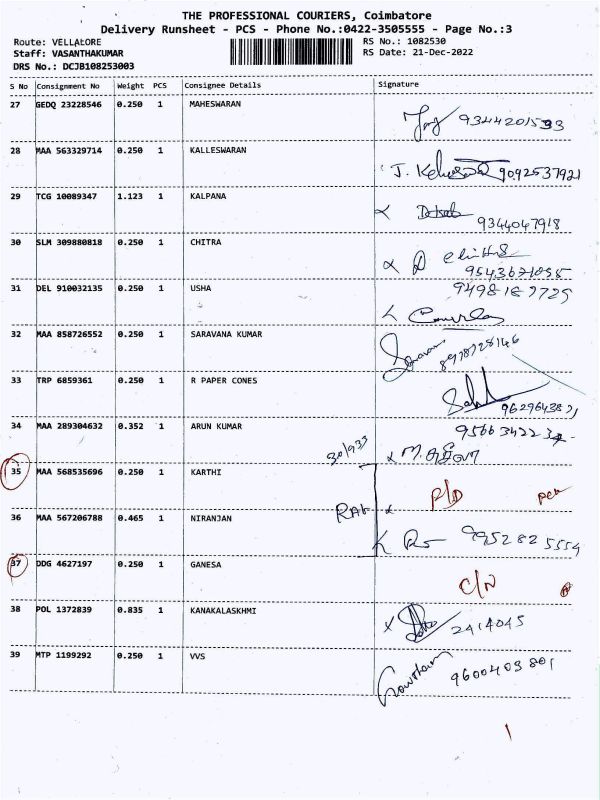 THE PROFESSIONAL COURIERS, Coimbatore
Delivery Runsheet - PCS - Phone No.:0422-3505555 - Page No.:3
Route: VELLALORE
Staff: VASANTHAKUMAR
DRS No.: DCJB108253003
RS No.: 1082530
RS Date: 21-Dec-2022
S No Consignment No Weight PCS Consignee Details Signature
27 GEDQ 23228546 0.250 1 MAHESWARAN 9344201533
28 MAA 563329714 0.250 1 KALLESWARAN 9092537921
29 TCG 10089347 1.123 1 KALPANA 9344047918
30 SLM 309880818 0.250 1 CHITRA
31 DEL 910032135 0.250 1 USHA
32 MAA 858726552 0.250 1 SARAVANA KUMAR
33 TRP 6859361 0.250 1 R PAPER CONES
34 MAA 289304632 0.352 1 ARUN KUMAR
35 MAA 568535696 0.250 1 KARTHI
36 MAA 567206788 0.465 1 NIRANJAN 9952825554
37 DDG 4627197 0.250 1 GANESA C/N
38 POL 1372839 0.835 1 KANAKALASKHMI 2414045
39 MTP 1199292 0.250 1 VVS Gowtham 9600403801